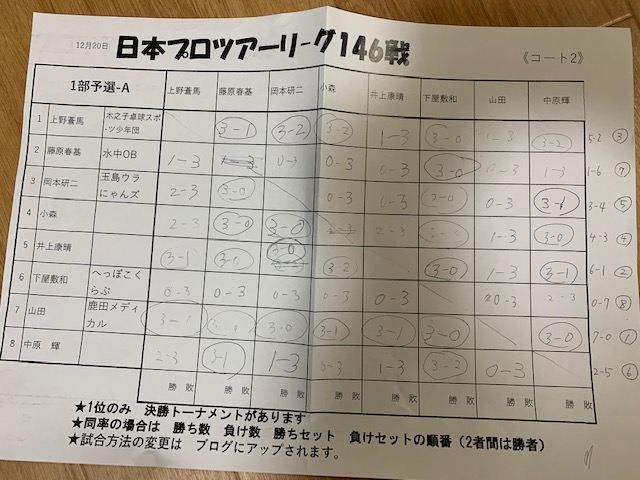 12月20日 日本プロツアーリーグ146戦 《コート2》
1部予選-A 上野蒼馬 藤原春基 岡本研二 小森 井上康晴 下屋敷和 山田 中原輝
1 上野蒼馬 木之子卓球スポーツ少年団 3-1 3-2 3-2 1-3 3-0 1-3 3-2 5-2 ③
2 藤原春基 水中OB 1-3 0-3 0-3 0-3 3-0 0-3 1-3 1-6 ⑦
3 岡本研二 玉島ウラにゃんズ 2-3 3-0 0-3 0-3 3-0 0-3 3-1 3-4 ⑤
4 小森 2-3 3-0 3-0 2-3 3-0 1-3 3-0 4-3 ④
5 井上康晴 3-1 3-0 3-0 3-2 3-0 1-3 3-1 6-1 ②
6 下屋敷和 へっぽこくらぶ 0-3 0-3 0-3 0-3 0-3 0-3 2-3 0-7 ⑧
7 山田 鹿田メディカル 3-0 3-1 3-1 3-0 3-0 7-0 ①
8 中原 輝 2-3 3-1 1-3 0-3 1-3 3-2 0-3 2-5 ⑥
勝 敗 勝 敗 勝 敗 勝 敗 勝 敗 勝 敗 勝 敗 勝 敗
★1位のみ 決勝トーナメントがあります
★同率の場合は 勝ち数 負け数 勝ちセット 負けセットの順番（2者間は勝者）
★試合方法の変更は ブログにアップされます。